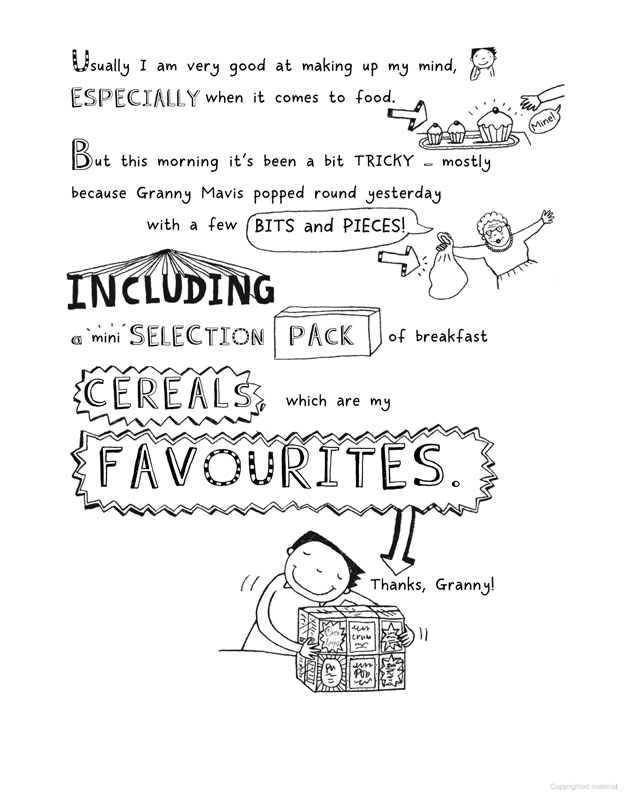 Usually I am very good at making up my mind,
ESPECIALLY when it comes to food.
Mine!
But this morning it's been a bit TRICKY – mostly
because Granny Mavis popped round yesterday
with a few BITS and PIECES!
INCLUDING
a 'mini' SELECTION PACK of breakfast
CEREALS, which are my
FAVOURITES.
Thanks, Granny!
POP
Copyrighted material